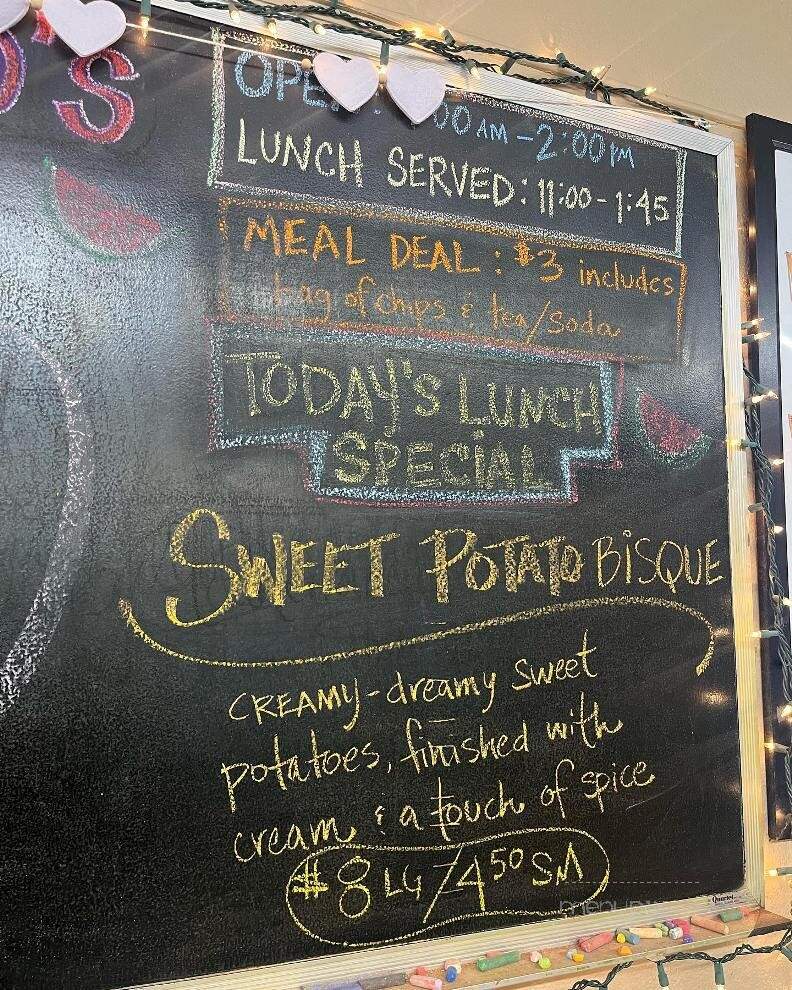 'S
OPEN: :00 AM - 2:00 PM
LUNCH SERVED: 11:00 - 1:45
MEAL DEAL: $3 includes
bag of chips & tea/soda
TODAY'S LUNCH
SPECIAL
SWEET POTATO BISQUE
CREAMY-dreamy sweet
potatoes, finished with
cream & a touch of spice
$8 LG / 4 50 SM
Quartet